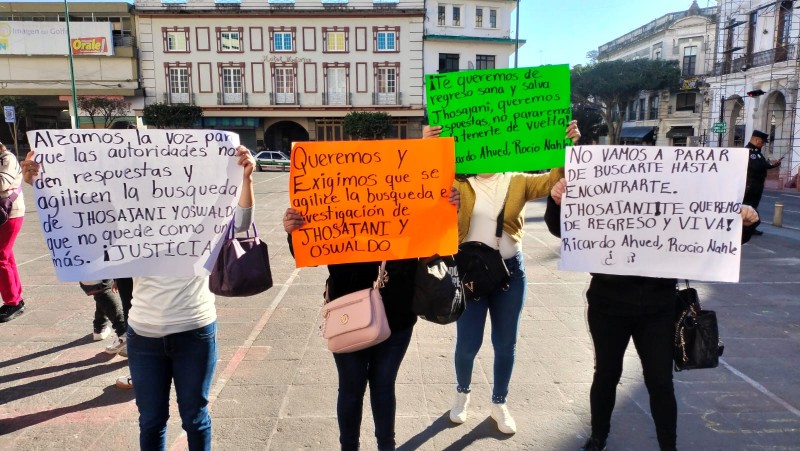 Orale!
Alzamos la voz par
que las autoridades nos
den respuestas y
agilicen la busqueda
de JHOSAJANI Y OSWALD
que no quede como un
más. ¡JUSTICIA
Queremos y
Exigimos que se
agilize la busqueda e
nvestigación de
JHOSAJANI Y
OSWALDO
¡Te queremos de
regreso sana y salva
Jhosajani, queremos
espuestas, no pararemos
tenerte de vuelta!
ardo Ahued, Rocio Nahle
No vamos a parar
de buscarte hasta
encontrarte.
JHOSAJANI ¡Te queremos
de regreso y viva!
Ricardo Ahued, Rocio Nahle